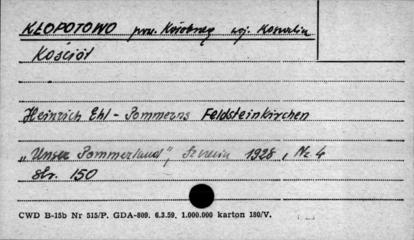 KŁOPOTOWO pow. Kołobrzeg woj. Koszalin
Kościół
Heinrich Ehl - Pommerns Feldsteinkirchen
„Unser Pommerland", Szczecin 1928, Nr. 4
str. 150
CWD B-15b Nr 515/P. GDA-809. 6.3.59. 1.000.000 karton 180/V.